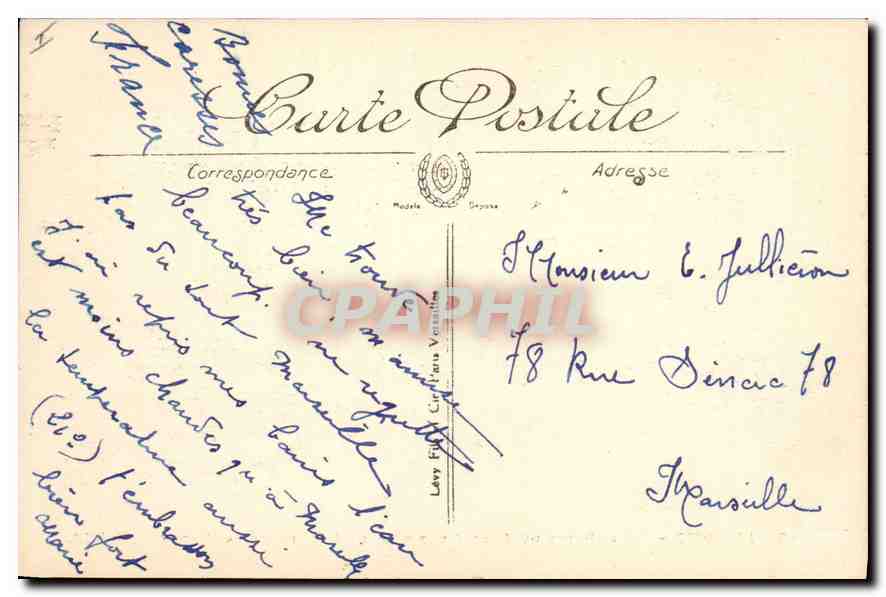 Bonnes
caresses
France
Carte Postale
Correspondance
Adresse
Modèle Déposé
Me trouve
très bien, m'amuse
beaucoup, ne regrette
pas du tout Marseille l'eau
J'ai repris mes bains
est moins chaude qu'à Marseille
la température aussi
(21°) t'embrassons
bien fort
Monsieur E. Jullieron
78 Rue Sénac 78
Marseille
Lévy Fils et Cie Paris Versailles
CPAPHIL